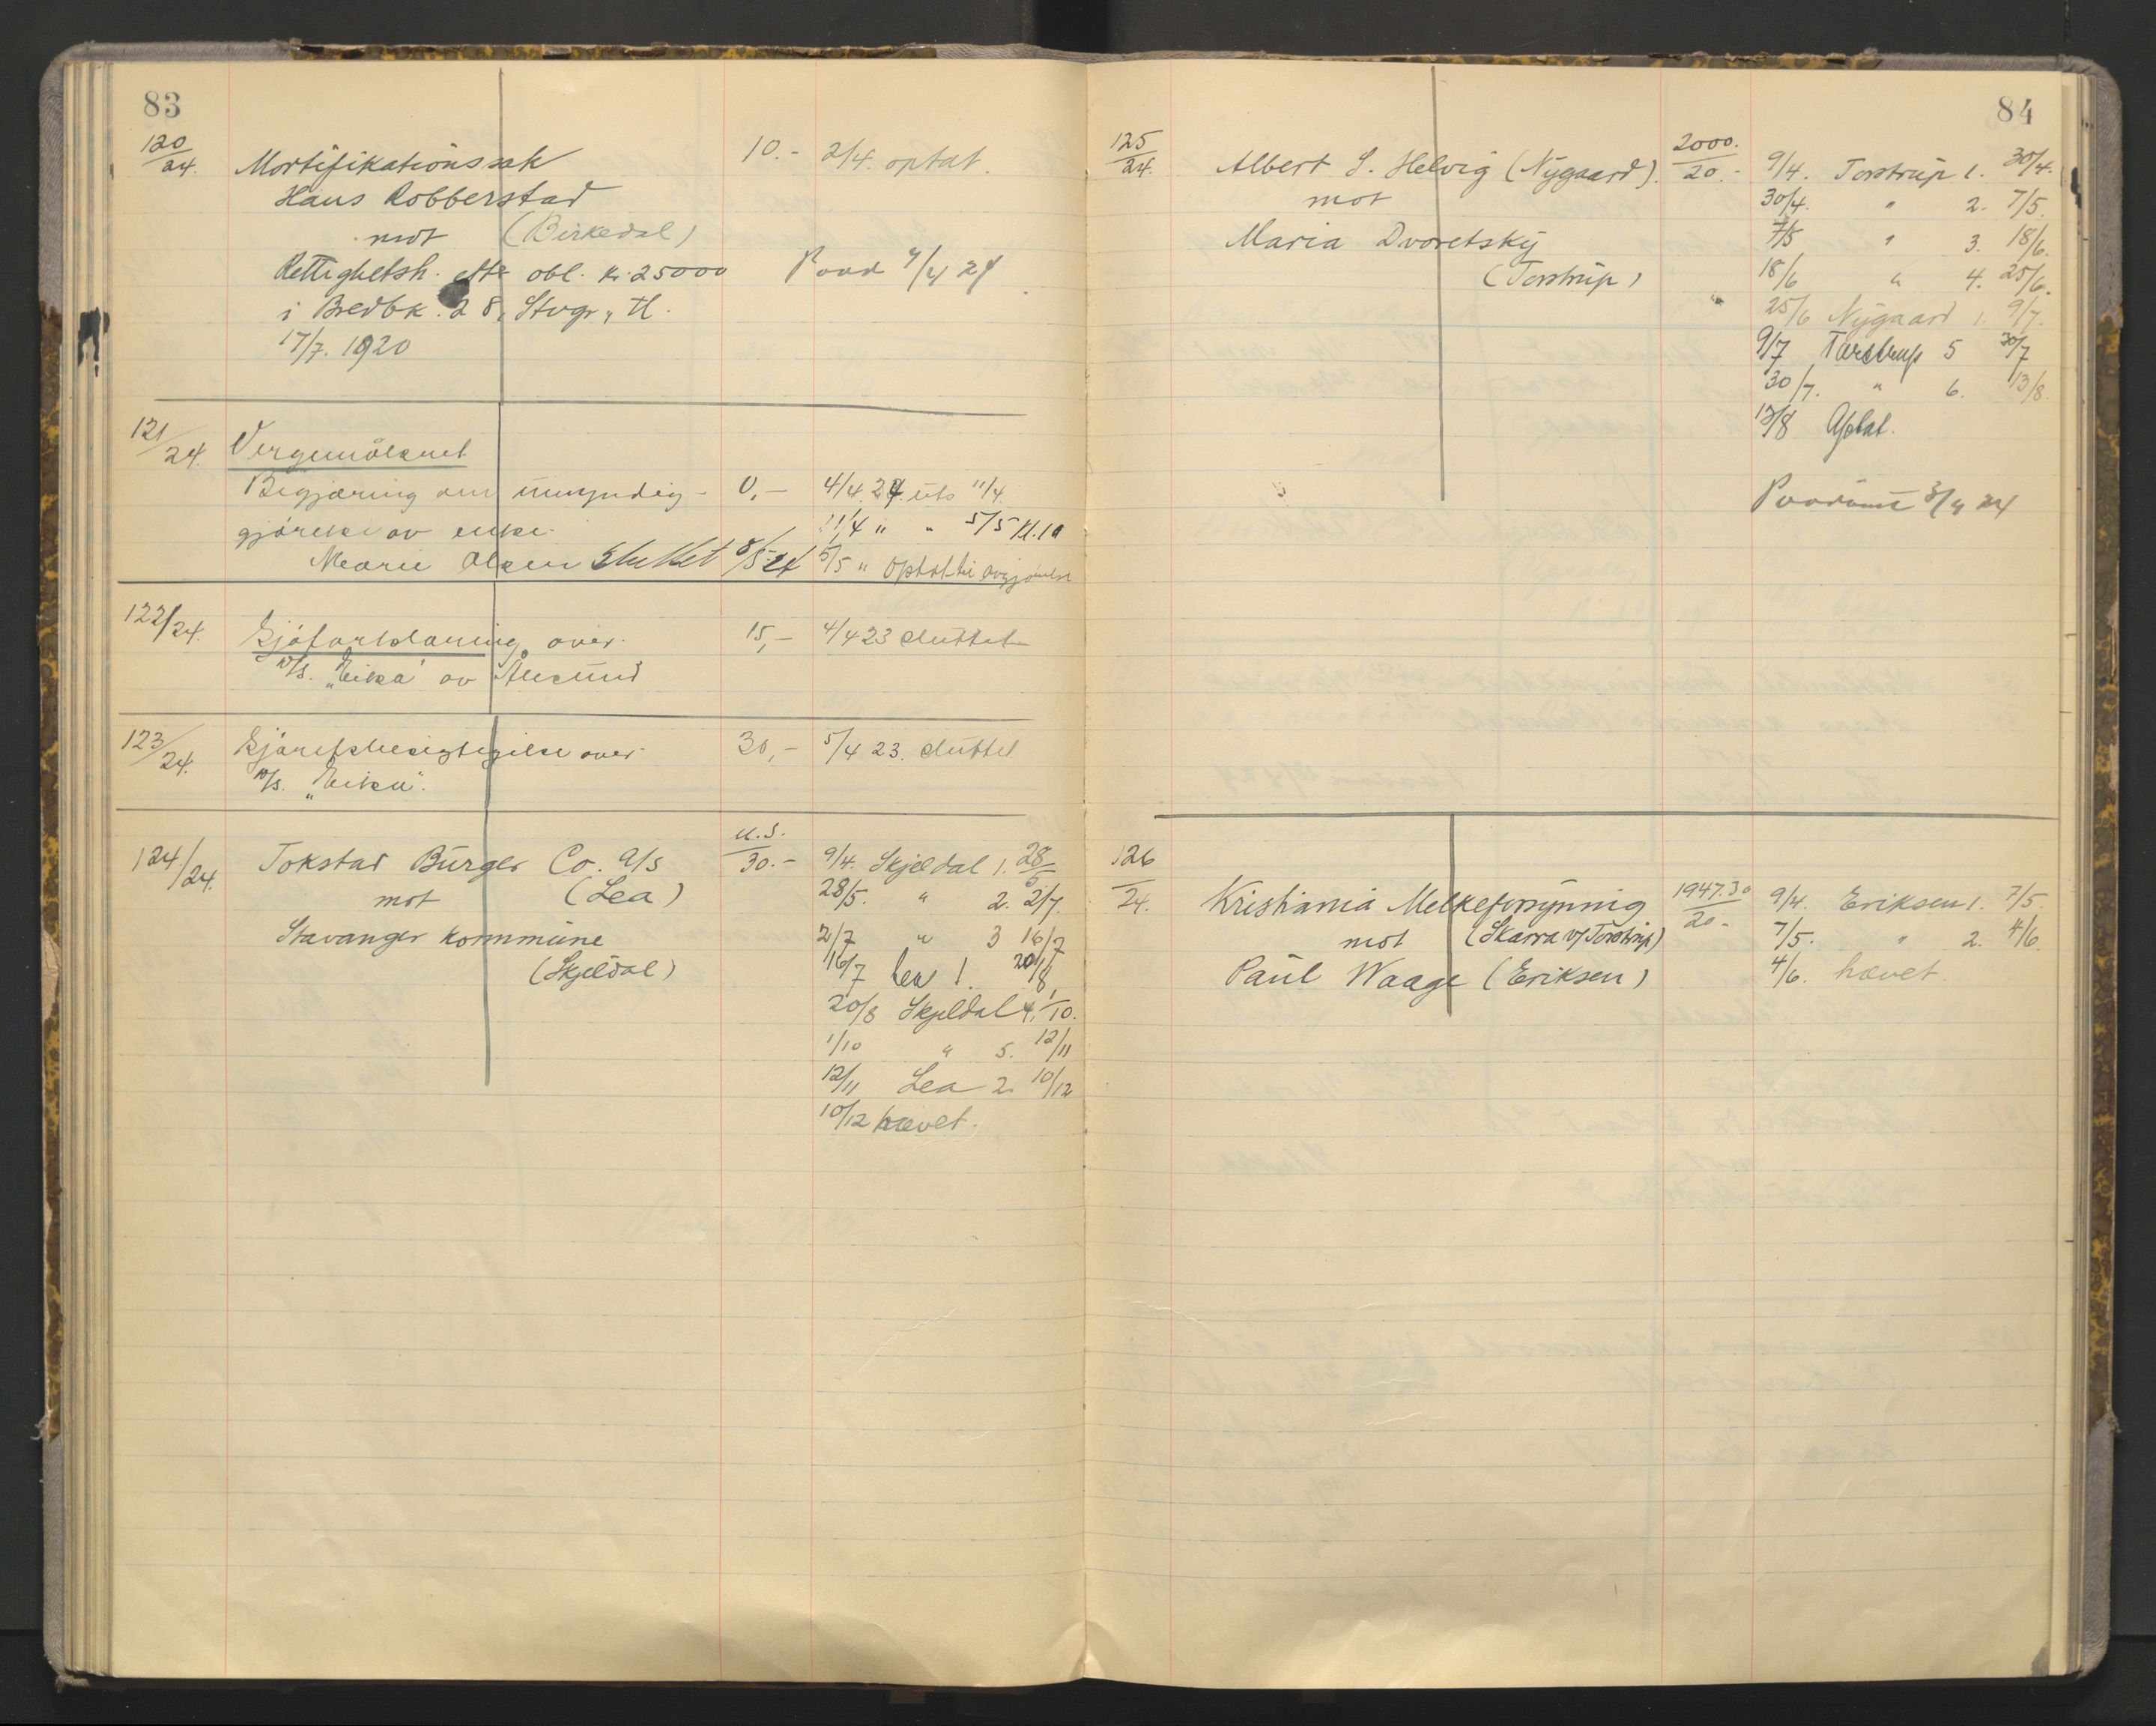 83
120/24. Mortifikationssak 10.- 2/4. optat.
Hans Robberstad
mot (Birkedal)
Rettighetsh. efter obl. kr. 25000
i Bredbk. 28, Stvgr.
17/7. 1920
121/24. Vergemålsret
Begjæring om umyndig- 0,- 4/4. 24. uts 11/4.
gjørelse av enke 11/4 " " 5/5 kl. 10
Marie Olsen Sluttet 8/5-24 5/5 " optat til avgjørelse
122/24. Sjøforklaring over 15,- 4/4 23 sluttet
D/S. „Eika" av Ålesund
123/24. Sjørets besigtigelse over 30,- 5/4 23. sluttet
D/S. „Eika".
124/24. Tokstad Bürger Co. A/S u.s./30.- 9/4. Skjeldal 1. 28/5
mot (Lea) 28/5. " 2. 2/7.
Stavanger kommune 2/7 " 3 16/7
(Skjeldal) 16/7 Lea 1. 20/8
20/8 Skjeldal 4. 1/10.
1/10 " 5. 12/11
12/11 Lea 2. 10/12
10/12 hævet.
84
125/24. Albert S. Helvig (Nygaard). 2000./20.- 9/4. Torstrup 1. 30/4.
mot 30/4. " 2. 7/5.
Maria Dvoretsky 7/5 " 3. 18/6.
(Torstrup) 18/6 " 4. 25/6.
" 25/6 Nygaard 1. 9/7.
9/7 Torstrup 5 30/7
30/7. " 6. 13/8.
13/8 Optat.
126/24. Kristiania Melkeforsyning 1947.30/20.- 9/4. Eriksen 1. 7/5.
mot (Skarra v/Torstrup) 7/5. " 2. 4/6.
Paul Waage (Eriksen) 4/6. hævet.